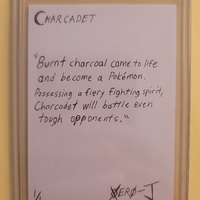 CHARCADET
"Burnt charcoal came to life
and become a Pokémon.
Possessing a fiery fighting spirit,
Charcadet will battle even
tough opponents."
1/1
XERØ-J